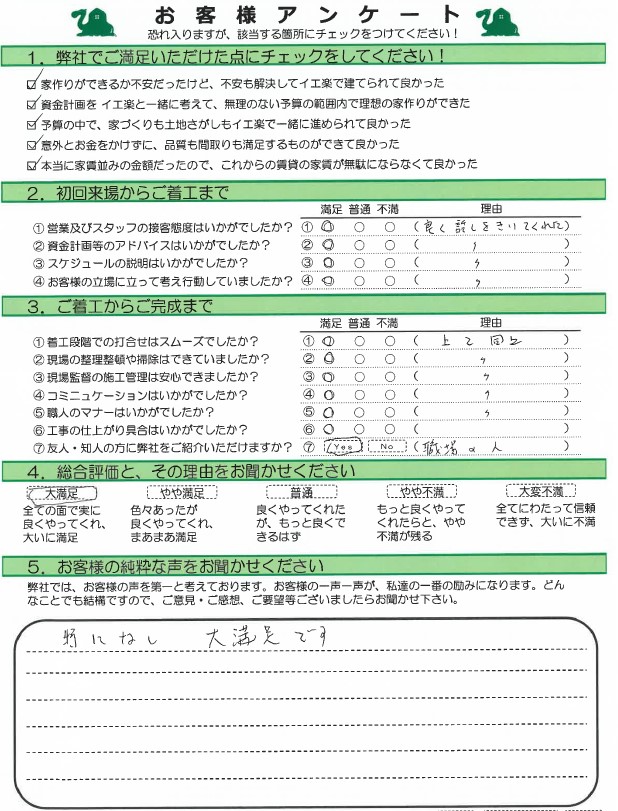 お客様アンケート
恐れ入りますが、該当する箇所にチェックをつけてください！
1．弊社でご満足いただけた点にチェックをしてください！
☑家作りができるか不安だったけど、不安も解決してイエ楽で建てられて良かった
☑資金計画を イエ楽と一緒に考えて、無理のない予算の範囲内で理想の家作りができた
☑予算の中で、家づくりも土地さがしもイエ楽で一緒に進められて良かった
☑意外とお金をかけずに、品質も間取りも満足するものができて良かった
☑本当に家賃並みの金額だったので、これからの賃貸の家賃が無駄にならなくて良かった
2．初回来場からご着工まで
満足 普通 不満 理由
①営業及びスタッフの接客態度はいかがでしたか？ ① ○ ○ ○ (良く話しをきいてくれた)
②資金計画等のアドバイスはいかがでしたか？ ② ○ ○ ○ ( 〃 )
③スケジュールの説明はいかがでしたか？ ③ ○ ○ ○ ( 〃 )
④お客様の立場に立って考え行動していましたか？ ④ ○ ○ ○ ( 〃 )
3．ご着工からご完成まで
満足 普通 不満 理由
①着工段階での打合せはスムーズでしたか？ ① ○ ○ ○ ( 上と同じ )
②現場の整理整頓や掃除はできていましたか？ ② ○ ○ ○ ( 〃 )
③現場監督の施工管理は安心できましたか？ ③ ○ ○ ○ ( 〃 )
④コミニュケーションはいかがでしたか？ ④ ○ ○ ○ ( 〃 )
⑤職人のマナーはいかがでしたか？ ⑤ ○ ○ ○ ( 〃 )
⑥工事の仕上がり具合はいかがでしたか？ ⑥ ○ ○ ○ ( )
⑦友人・知人の方に弊社をご紹介いただけますか？ ⑦ Yes No (職場の人 )
4．総合評価と、その理由をお聞かせください
大満足 やや満足 普通 やや不満 大変不満
全ての面で実に良くやってくれ、大いに満足
色々あったが良くやってくれ、まあまあ満足
良くやってくれたが、もっと良くできるはず
もっと良くやってくれたらと、やや不満が残る
全てにわたって信頼できず、大いに不満
5．お客様の純粋な声をお聞かせください
弊社では、お客様の声を第一と考えております。お客様の一声一声が、私達の一番の励みになります。どん
なことでも結構ですので、ご意見・ご感想、ご要望等ございましたらお聞かせ下さい。
特になし 大満足です